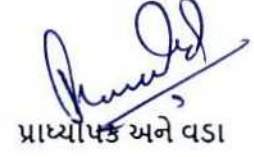 પ્રાધ્યાપક અને વડા